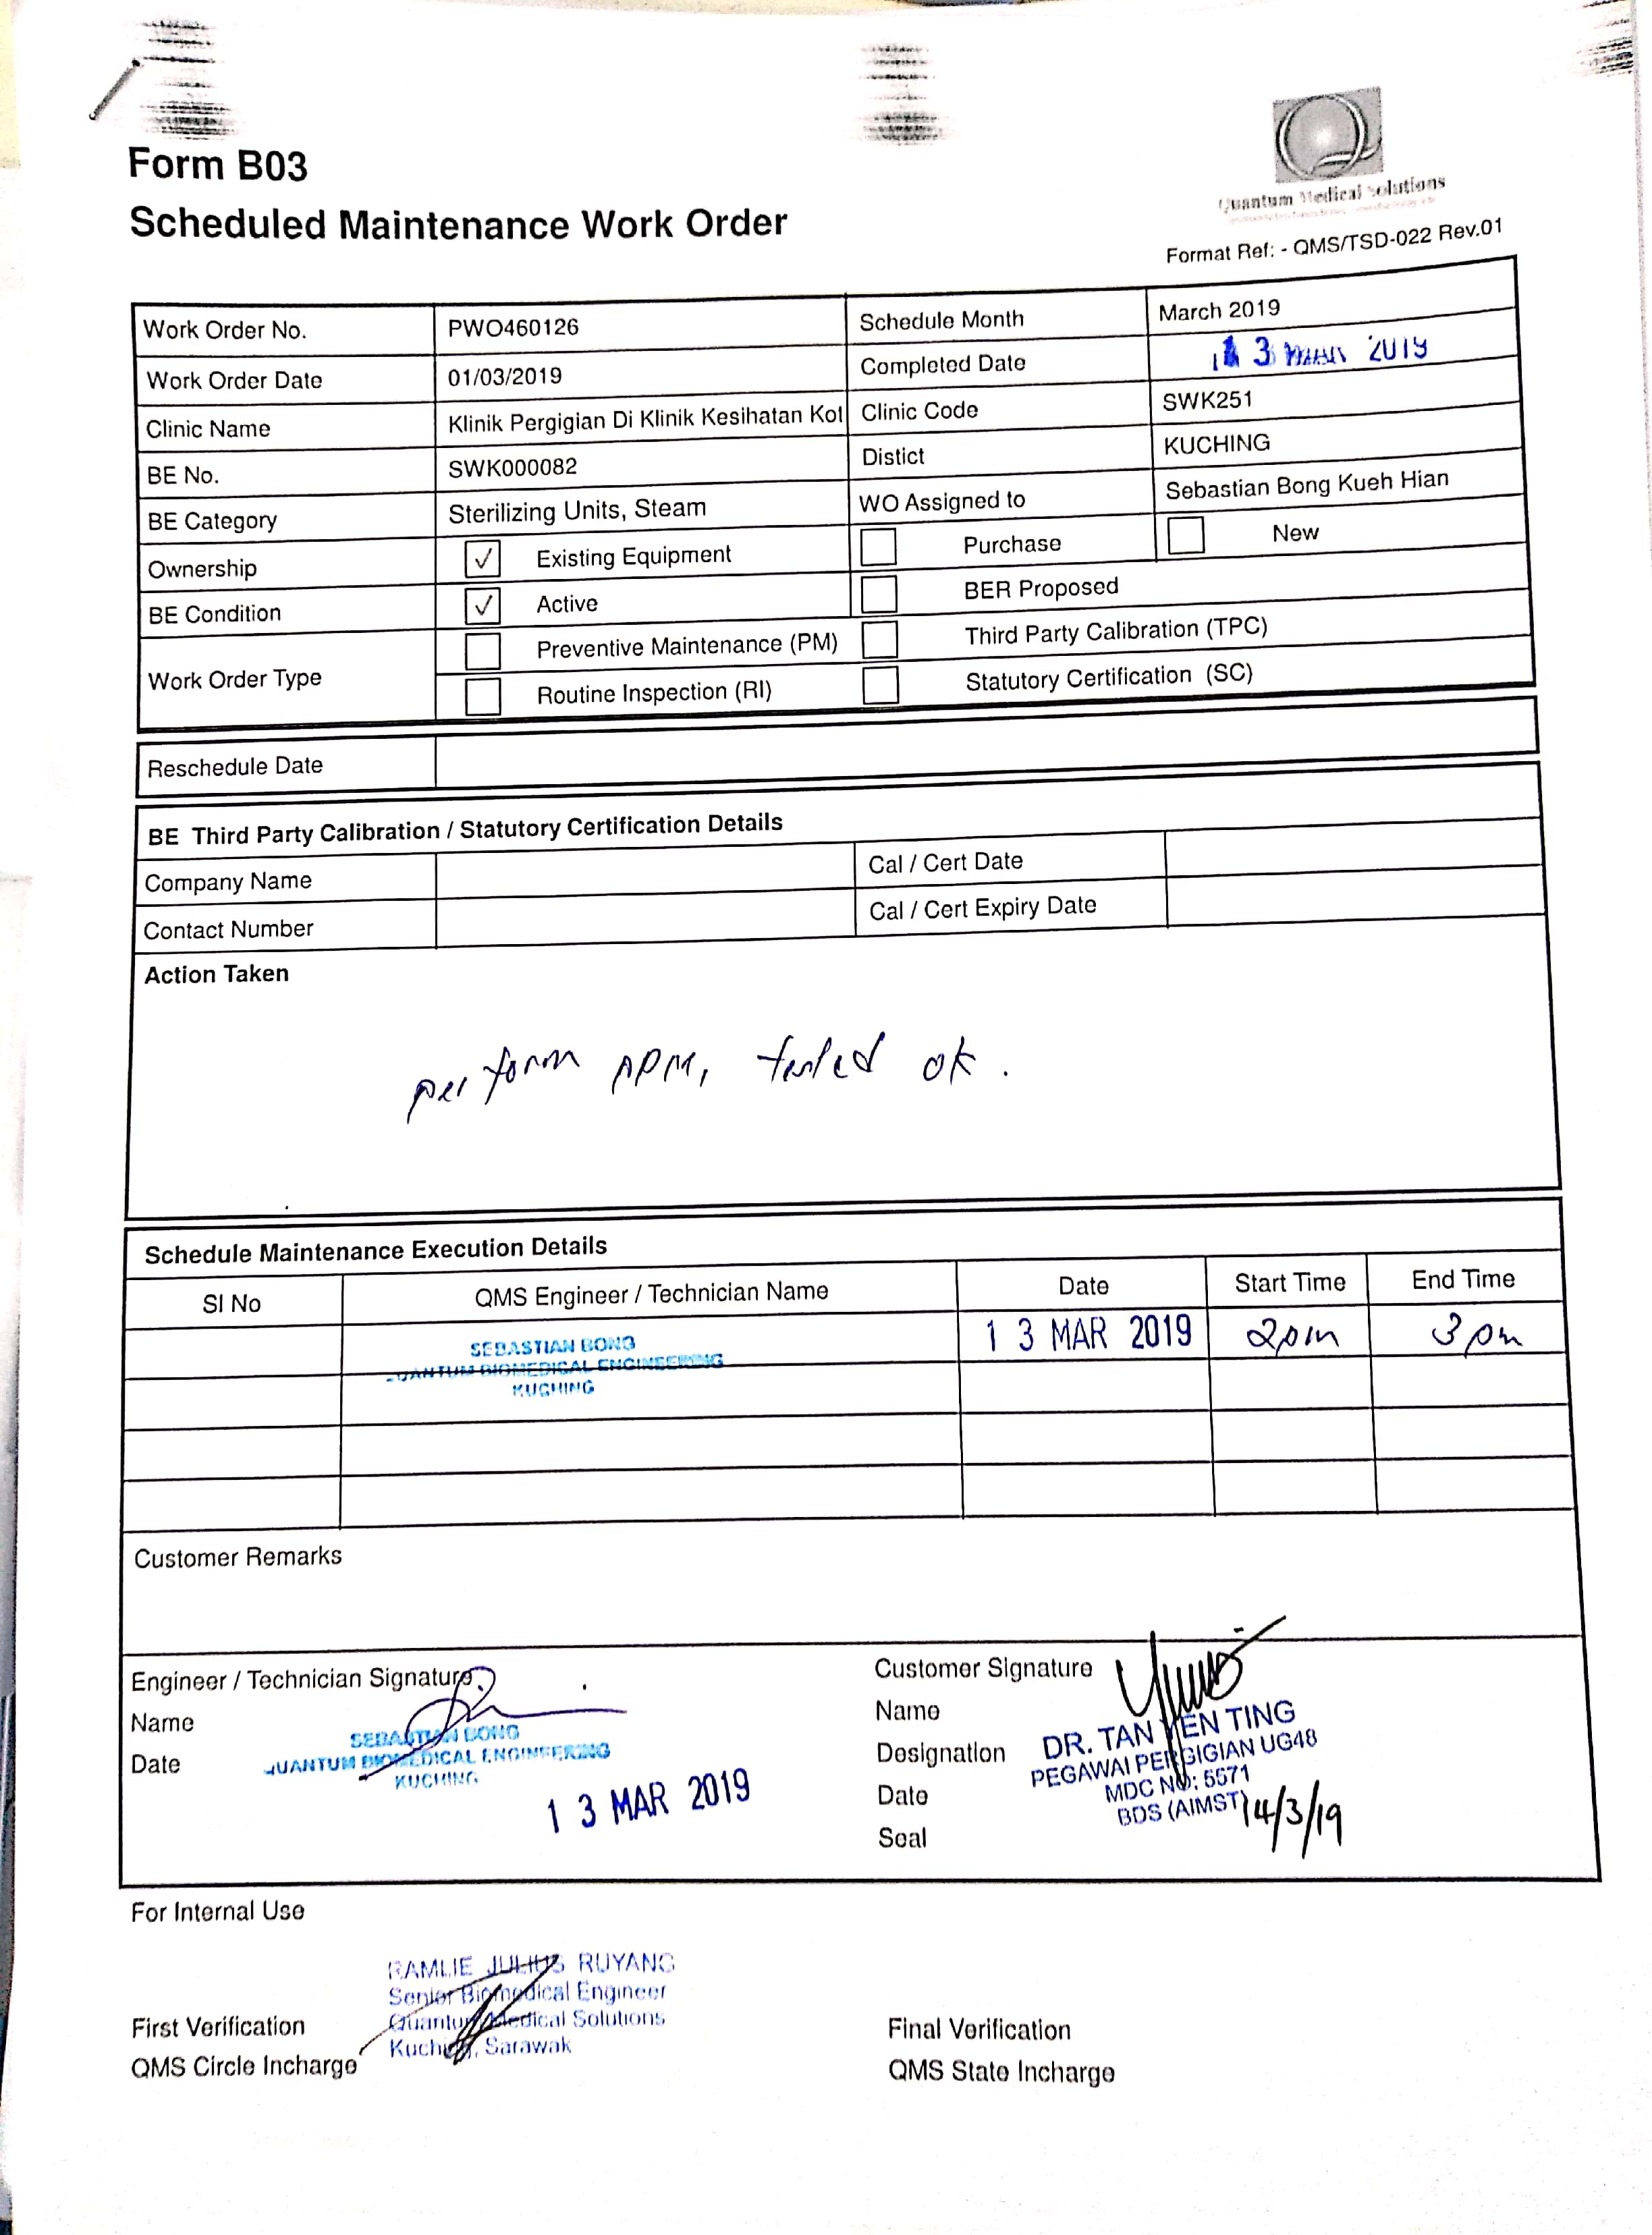 Form B03
Scheduled Maintenance Work Order
Quantum Medical Solutions
Format Ref: - QMS/TSD-022 Rev.01
Work Order No. PWO460126 Schedule Month March 2019
Work Order Date 01/03/2019 Completed Date 13 MAR 2019
Clinic Name Klinik Pergigian Di Klinik Kesihatan Kot Clinic Code SWK251
BE No. SWK000082 Distict KUCHING
BE Category Sterilizing Units, Steam WO Assigned to Sebastian Bong Kueh Hian
Ownership ✓ Existing Equipment Purchase New
BE Condition ✓ Active BER Proposed
Work Order Type Preventive Maintenance (PM) Third Party Calibration (TPC)
Routine Inspection (RI) Statutory Certification (SC)
Reschedule Date
BE Third Party Calibration / Statutory Certification Details
Company Name Cal / Cert Date
Contact Number Cal / Cert Expiry Date
Action Taken
perform PPM, tested ok.
Schedule Maintenance Execution Details
SI No QMS Engineer / Technician Name Date Start Time End Time
SEBASTIAN BONG 13 MAR 2019 2pm 3pm
QUANTUM BIOMEDICAL ENGINEERING
KUCHING
Customer Remarks
Engineer / Technician Signature
Name
Date
SEBASTIAN BONG
QUANTUM BIOMEDICAL ENGINEERING
KUCHING
13 MAR 2019
Customer Signature
Name
Designation
Date
Seal
DR. TAN YEN TING
PEGAWAI PERGIGIAN UG48
MDC NO: 5571
BDS (AIMST)
14/3/19
For Internal Use
RAMLIE JULIUS RUYANG
Senior Biomedical Engineer
Quantum Medical Solutions
Kuching, Sarawak
First Verification
QMS Circle Incharge
Final Verification
QMS State Incharge